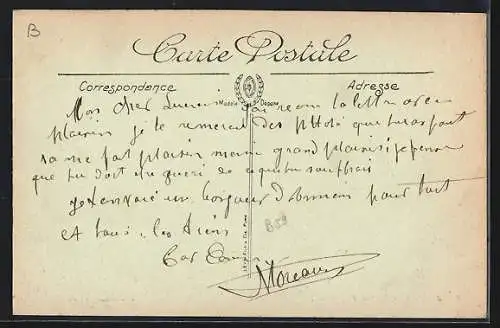 B
Carte Postale
Correspondance
Adresse
Modèle Déposé
Mon cher jai recu ta lettre avec
plaisir je te remerci des photo que tu as fait
sa me fait plaisir meme grand plaisir je pense
que tu doit etre gueri de ce que tu souffrais
je tenvoie un bonjour d'un ami pour tout
et tous les tiens
Ton
Moreau
B58